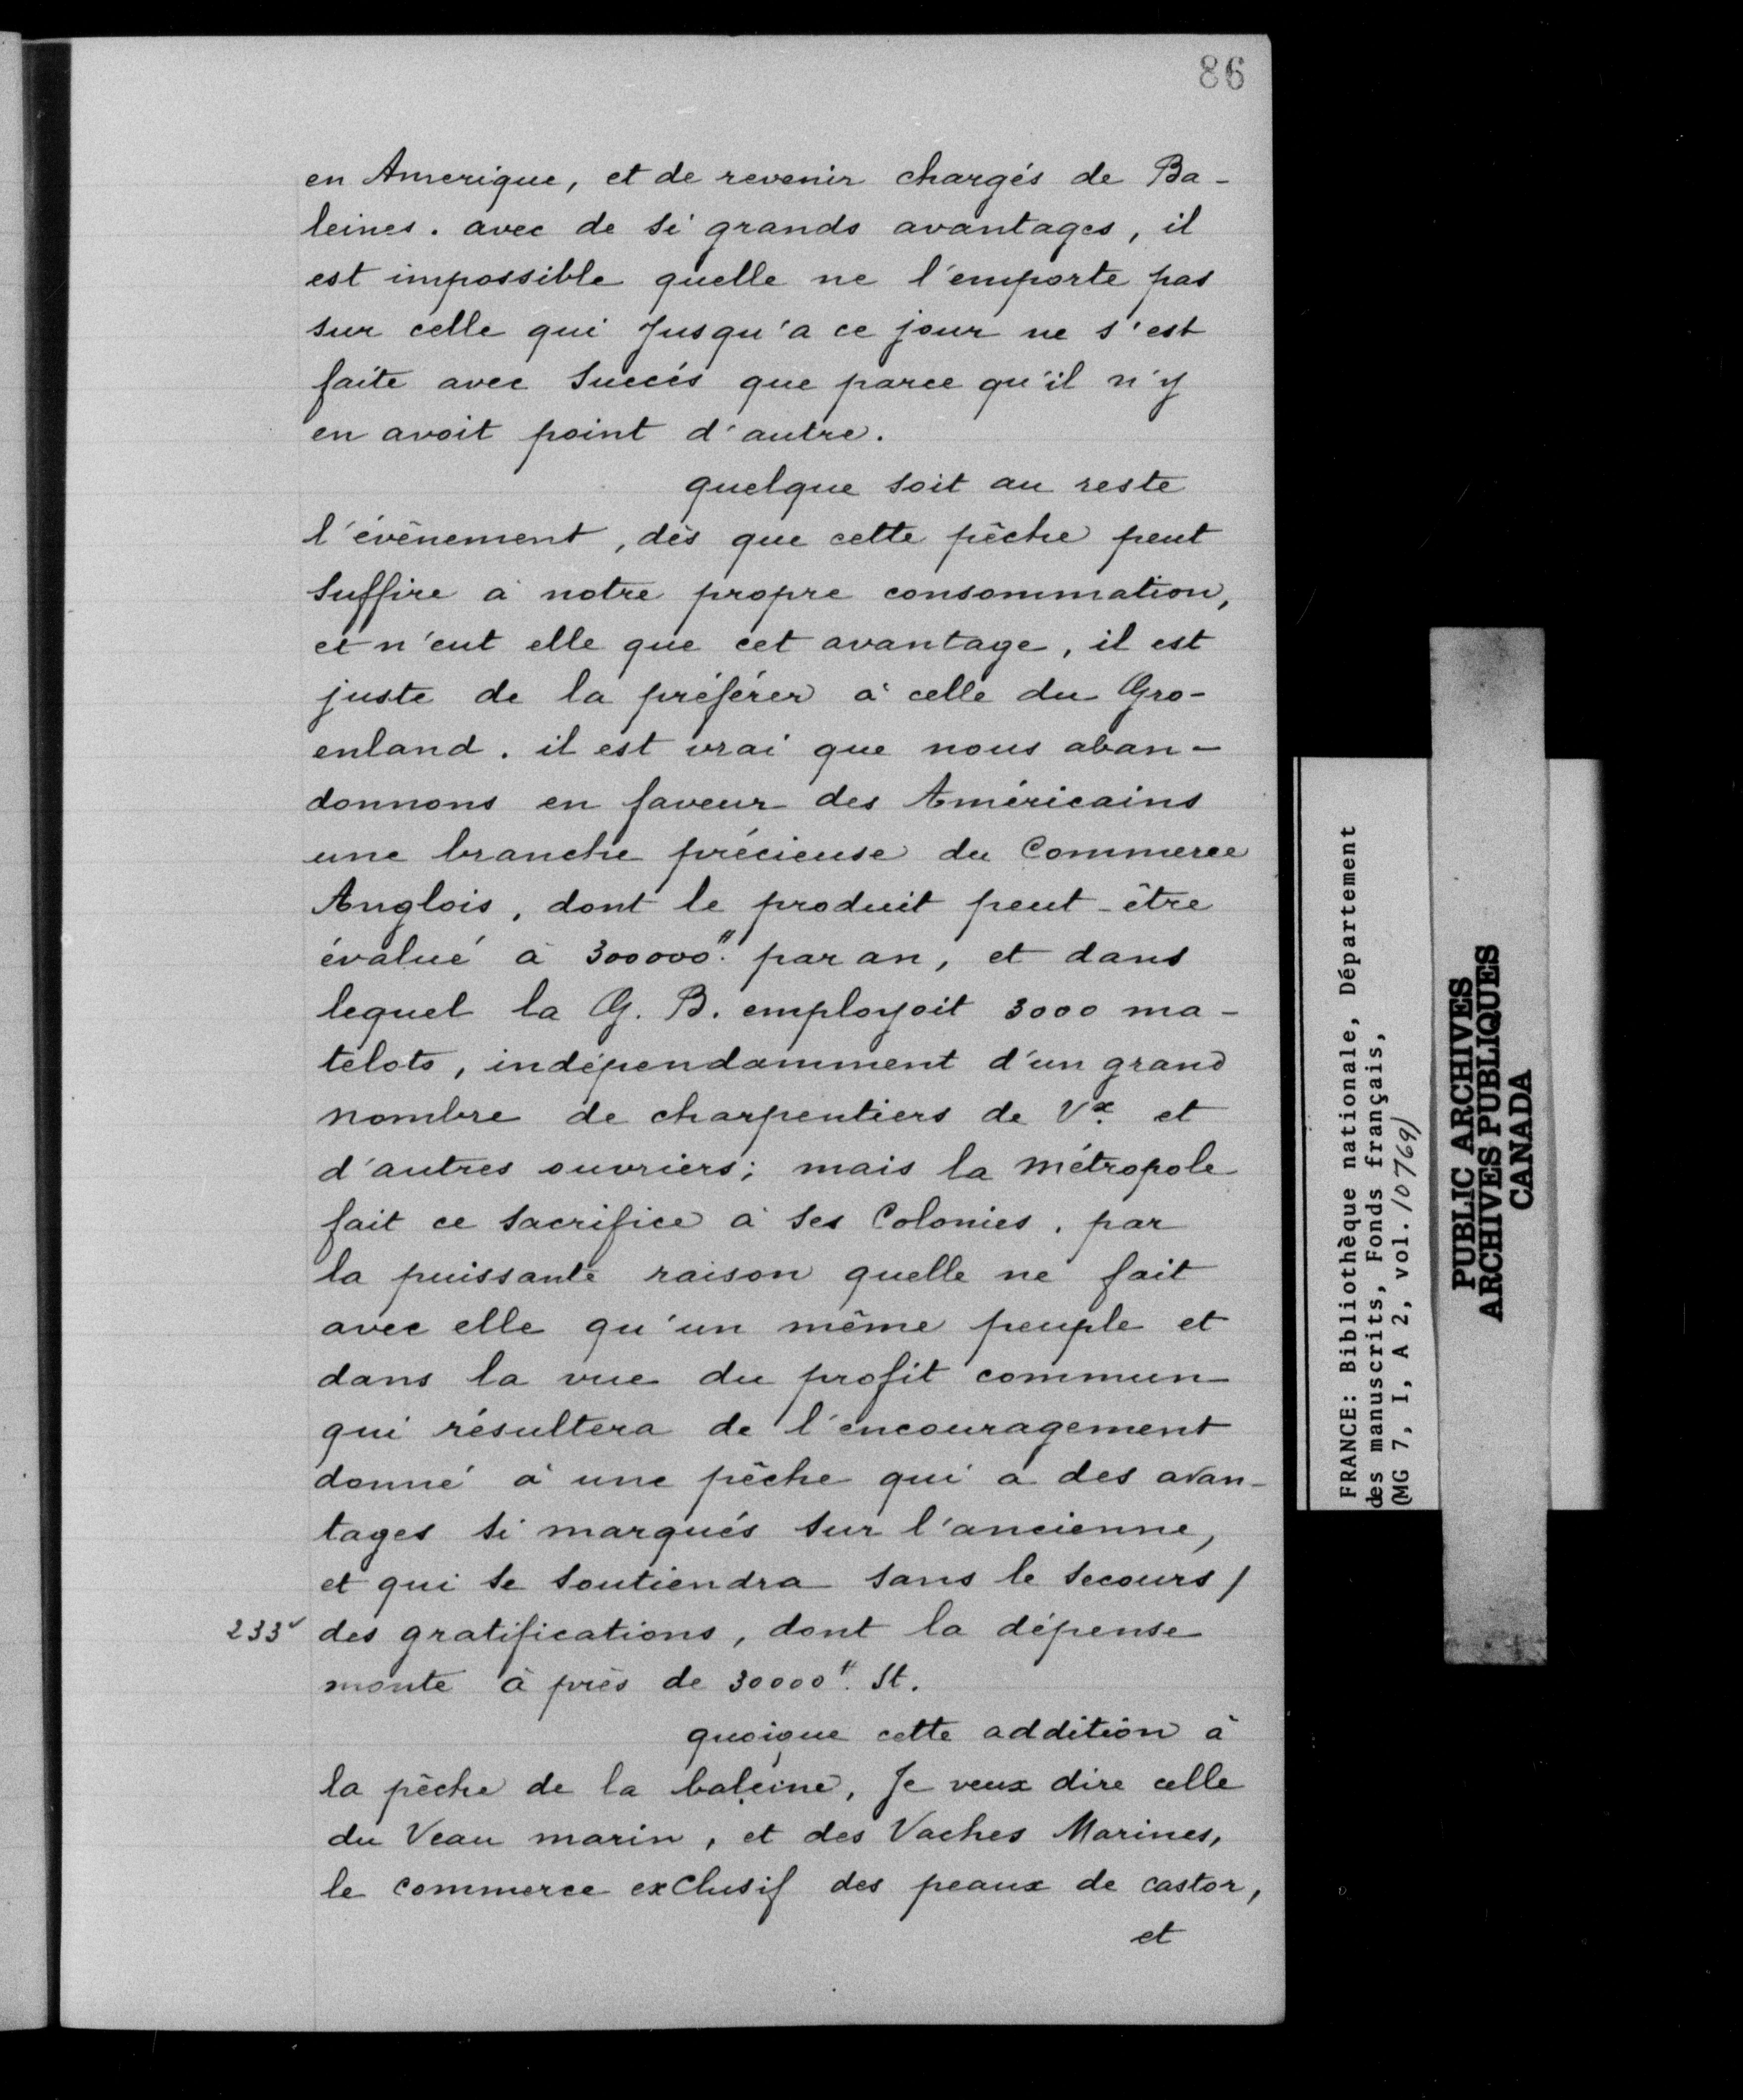 86
en Amerique, et de revenir chargés de Ba-
leines. avec de si grands avantages, il
est impossible quelle ne l'emporte pas
sur celle qui Jusqu'a ce jour ne s'est
faite avec Succés que parce qu'il n'y
en avoit point d'autre.
quelque soit au reste
l'évènement, dès que cette pêche peut
suffire à notre propre consommation,
et n'eut elle que cet avantage, il est
juste de la préférer à celle du Gro-
enland. il est vrai que nous aban-
donnons en faveur des Américains
une branche précieuse du Commerce
Anglois, dont le produit peut-être
évalué à 300000" par an, et dans
lequel la G. B. employoit 3000 ma-
telots, indépendamment d'un grand
nombre de charpentiers de Vx. et
d'autres ouvriers; mais la métropole
fait ce sacrifice à ses Colonies. par
la puissante raison quelle ne fait
avec elle qu'un même peuple et
dans la vue du profit commun
qui résultera de l'encouragement
donné à une pêche qui a des avan-
tages si marqués sur l'ancienne,
et qui se soutiendra sans le secours /
233v des gratifications, dont la dépense
monte à près de 30000". St.
quoique cette addition à
la pêche de la baleine, Je veux dire celle
du Veau marin, et des Vaches Marines,
le commerce exClusif des peaux de castor,
et
FRANCE: Bibliothèque nationale, Département
des manuscrits, Fonds français,
(MG 7, I, A 2, vol. 10769)
PUBLIC ARCHIVES
ARCHIVES PUBLIQUES
CANADA